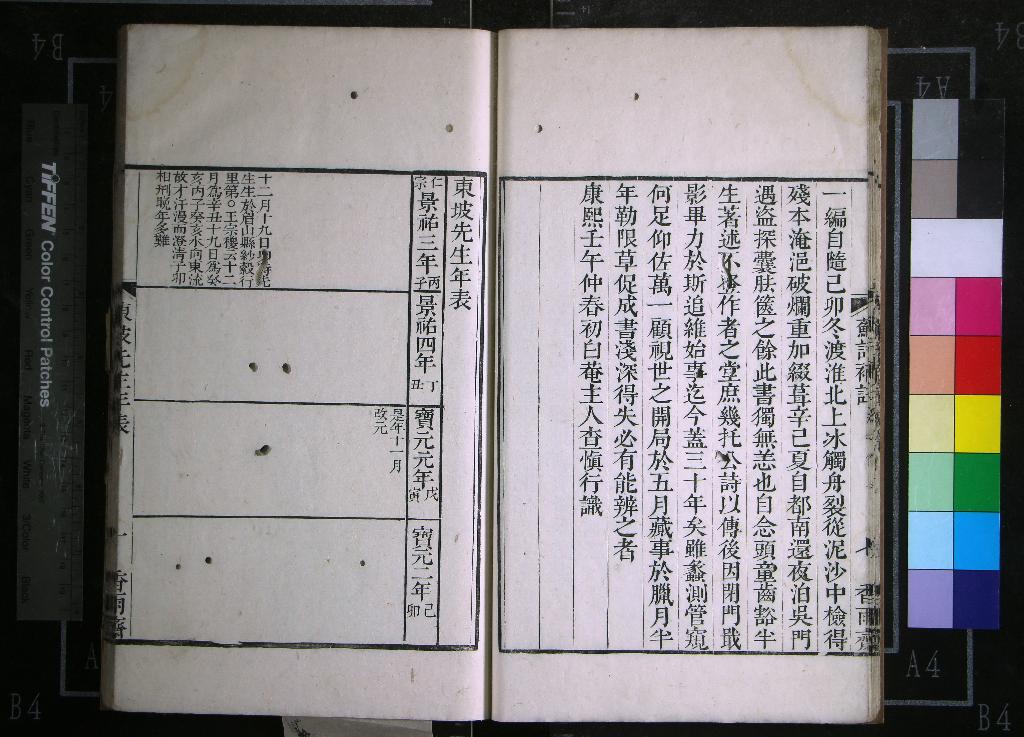 一編自隨己卯冬渡淮北上氷觸舟裂從泥沙中檢得
殘本淹浥破爛重加綴葺辛己夏自都南還夜泊吳門
遇盜探囊胠篋之餘此書獨無恙也自念頭童齒豁半
生著述不登作者之堂庶幾托公詩以傳後因閉門戢
影畢力於斯追維始事迄今蓋三十年矣雖蠡測管窺
何足仰佐萬一顧視世之開局於五月蕆事於臘月半
年勒限草促成書淺深得失必有能辨之者
康熙壬午仲春初白菴主人查慎行識
東坡先生年表
仁宗
景祐三年
丙子
景祐四年
丁丑
寶元元年
戊寅
寶元二年
己卯
十二月十九日卯時先
生生於眉山縣紗縠行
里第○王宗稷云十二
月爲辛丑十九日爲癸
亥丙子癸亥水向東流
故才汗漫而澄清子卯
相刑晚年多難
是年十一月
改元
TIFFEN Color Control Patches
B4
A4
B4
B4
A4
B4